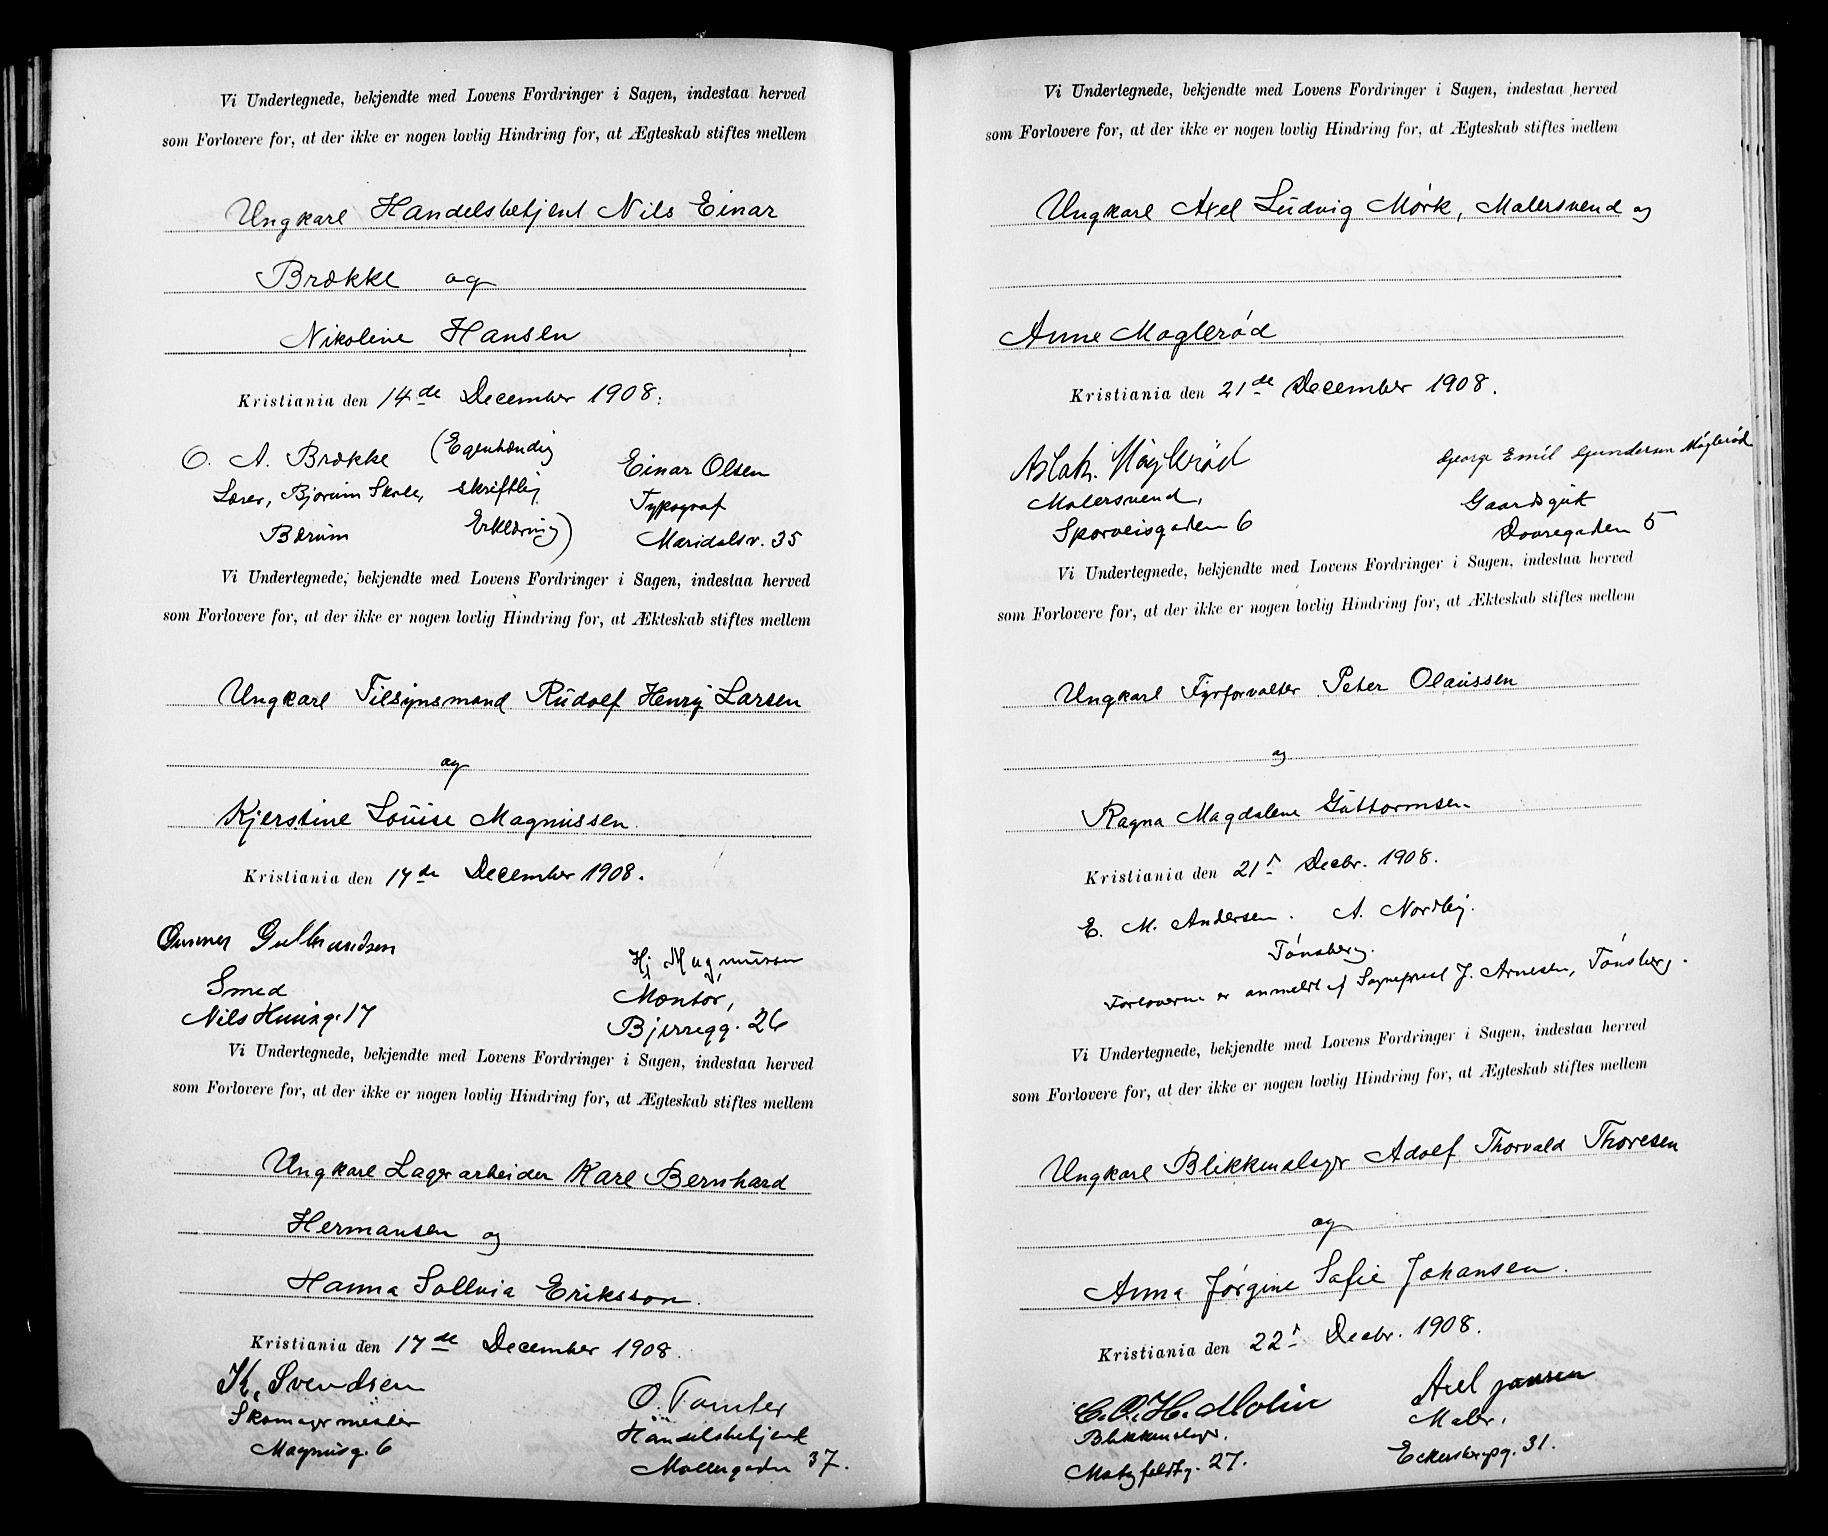 Vi Undertegnede, bekjendte med Lovens Fordringer i Sagen, indestaa herved
som Forlovere for, at der ikke er nogen lovlig Hindring for, at Ægteskab stiftes mellem
Ungkarl Handelsbetjent Nils Einar
Brække og
Nikoline Hansen
Kristiania den 14de December 1908.
O. A. Brække (Egenhændig Einar Olsen
Lærer, Bjorum Skole, skriftlig Typograf
Bærum Erklæring) Maridalsv. 35
Vi Undertegnede, bekjendte med Lovens Fordringer i Sagen, indestaa herved
som Forlovere for, at der ikke er nogen lovlig Hindring for, at Ækteskab stiftes mellem
Ungkarl Tilsynsmand Rudolf Henry Larsen
og
Kjerstine Louise Magnussen
Kristiania den 17de December 1908.
Gunner Gulbrandsen Hj Magnussen
Smed Montør,
Nils Huusg. 17 Bjerregg. 26
Vi Undertegnede, bekjendte med Lovens Fordringer i Sagen, indestaa herved
som Forlovere for, at der ikke er nogen lovlig Hindring for, at Ægteskab stiftes mellem
Ungkarl Lagerarbeider Karl Bernhard
Hermansen og
Hanna Sollvia Eriksson.
Kristiania den 17de December 1908.
K. Svendsen O. Tomter
Skomagermester Handelsbetjent
Magnusg. 6 Møllergaden 37.
Vi Undertegnede, bekjendte med Lovens Fordringer i Sagen, indestaa herved
som Forlovere for, at der ikke er nogen lovlig Hindring for, at Ægteskab stiftes mellem
Ungkarl Axel Ludvig Mørk, Malersvend og
Anne Møglerød
Kristiania den 21de December 1908.
Aslak Møglerød George Emil Gundersen Møglerød
Malersvend, Gaardsgut
Sporveisgaden 6 Dovregaden 5
Vi Undertegnede, bekjendte med Lovens Fordringer i Sagen, indestaa herved
som Forlovere for, at der ikke er nogen lovlig Hindring for, at Ækteskab stiftes mellem
Ungkarl Fyrforvalter Peter Olaussen
og
Ragna Magdalene Guttormsen
Kristiania den 21' Decbr. 1908.
E. M. Andersen. A. Nordby.
Tønsberg.
Forloverne er anmeldt af Sogneprest J. Arnesen, Tønsberg.
Vi Undertegnede, bekjendte med Lovens Fordringer i Sagen, indestaa herved
som Forlovere for, at der ikke er nogen lovlig Hindring for, at Ægteskab stiftes mellem
Ungkarl Blikkenslager Adolf Thorvald Thoresen
og
Anna Jørgine Safie Johansen.
Kristiania den 22' Decbr. 1908.
C. O. H. Molin Axel Jansen
Blikkenslager. Maler,
Motzfeldtg. 27. Eckersbergsg. 31.